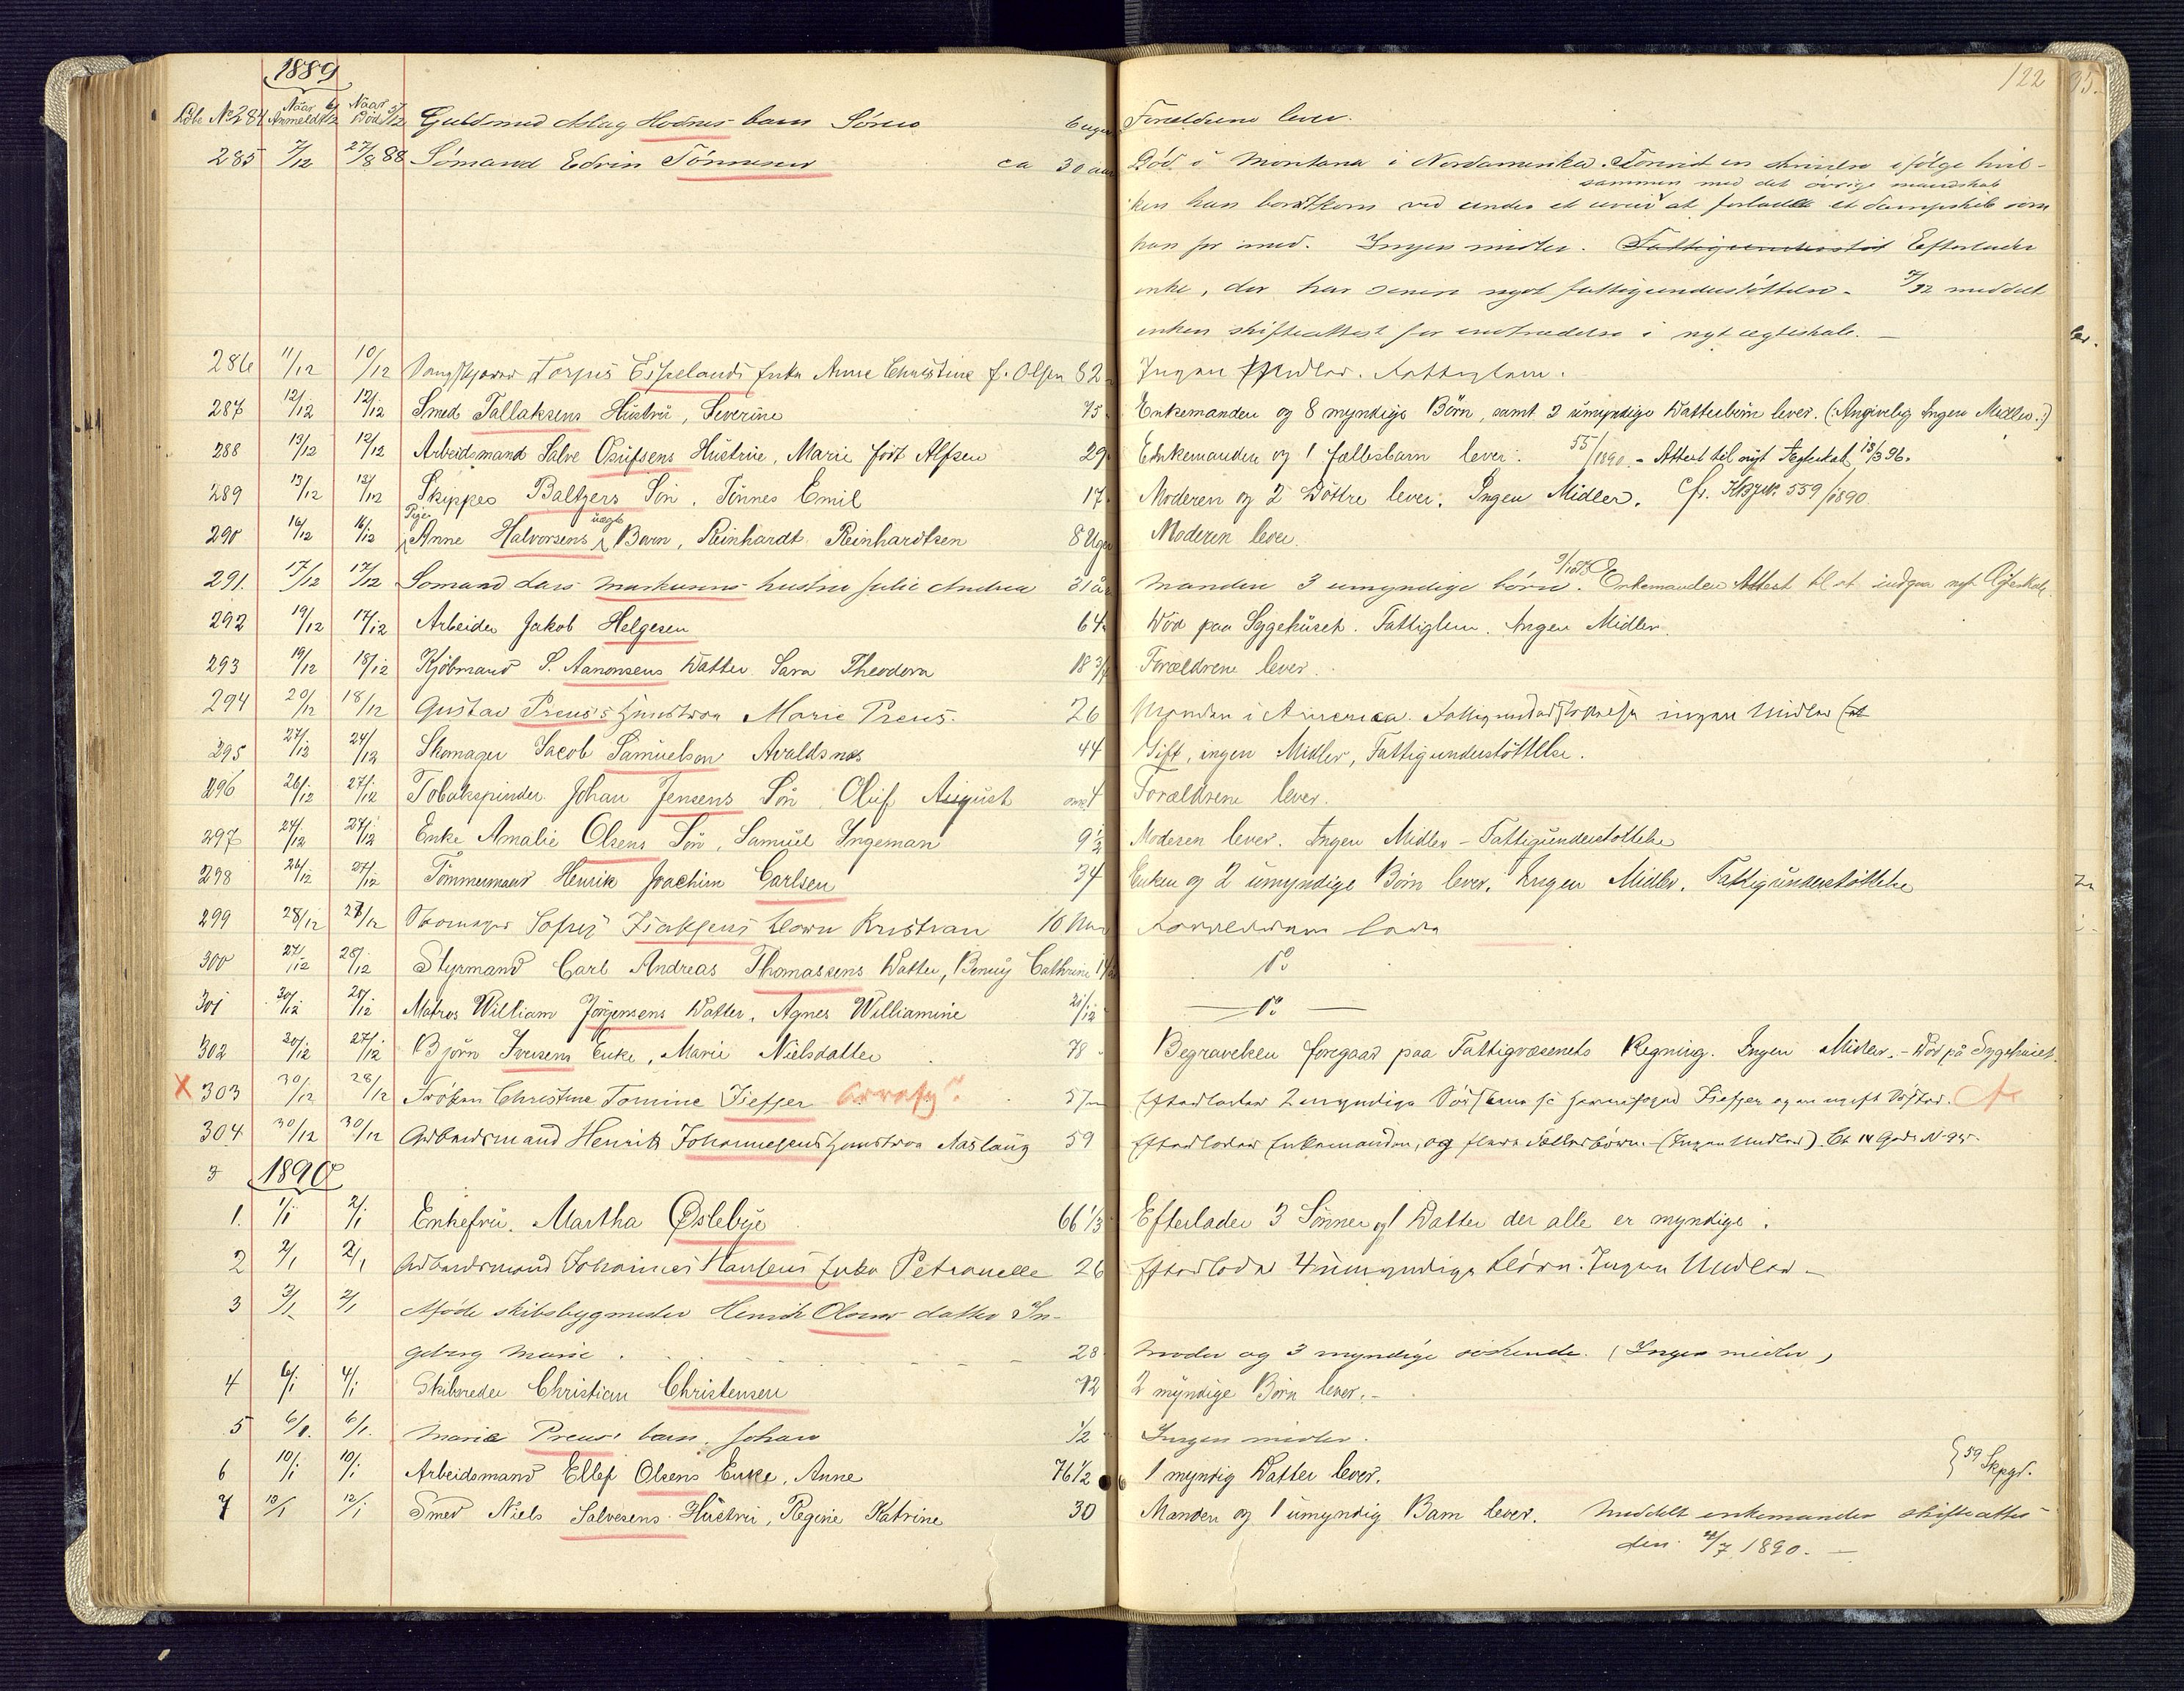 122
1889
Løbe No 284 Naar Anmeldt 6/12 Naar Død 5/12 Guldsmed Aslag Hodnes barn Sören 6 uger Forældrene lever.
285 7/12 27/8 88 Sömand Edvin Tönnesen ca 30 aar Död i Montana i Nordamerika. ifölge hvil-
sammen med det övrige mandskab
ken han bortkom ved under et uveir at forlade et dampskib som
han for med. Ingen midler. Fattigunderstöt Efterlader
enke, der har senere nydt fattigunderstöttelse. 7/92 meddelt
enken skifteattest for indtrædelse i nyt ægteskab. —
286 11/12 10/12 Torjus Espelands Enke Anne Christine f. Olsen 82 Ingen Midler. Fattiglem.
287 12/12 12/12 Smed Tallaksens Hustru, Severine 75 Enkemanden og 8 myndige Börn, samt 3 umyndige Datterbörn lever. (: Angivelig Ingen Midler :)
288 13/12 12/12 Arbeidsmand Salve Osufsens Hustrue, Marie födt Alfsen 29 Enkemanden og 1 fællesbarn lever. 55/1890. - Attest til nyt Ægteskab 18/3 96.
289 13/12 12/12 Skipper Baltzers Sön, Tönnes Emil 17 Moderen og 2 Döttre lever. Ingen Midler. Cfr. 559/1890
290 16/12 16/12 Pige Anne Halvorsens uægte Barn, Reinhardt Reinhardtsen 8 Uger Moderen lever
291. 17/12 17/12 Sömand Lars Markussens hustru Julie Andrea 31 aar Manden 3 umyndige börn. Enkemanden Attest til at indgaa nyt Ægteskab.
292 19/12 17/12 Arbeider Jakob Helgesen 64 Död paa Sygehuset. Fattiglem. Ingen Midler.
293 19/12 18/12 Kjöbmand S. Aanonsens Datter Sara Theodora 18 3/4 Forældrene lever.
294 20/12 18/12 Gustav Preus's Hustroe Marie Preus. 26 Manden i America. Fattigunderstöttelse ingen Midler
295 27/12 24/12 Skomager Jacob Samuelson Avaldsnes 44 Gift, ingen Midler, Fattigunderstöttelse.
296 26/12 27/12 Tobakspinder Johan Jensens Sön Oluf August 4 Forældrene lever.
297 24/12 24/12 Enke Amalie Olsens Sön, Samuel Ingeman 9 1/2 Moderen lever. Ingen Midler - Fattigunderstöttelse
298 26/12 27/12 Tömmermand Henrik Joachim Carlsen 34 Enken og 2 umyndige Börn lever. Ingen Midler. Fattigunderstöttelse
299 28/12 27/12 Skomager Isaksens barn Kristian 10 Forældrene lever
300 27/12 28/12 Styrmand Carl Andreas Thomassens Datter, Benny Cathrine Do
301 30/12 28/12 Matros William Jörgensens Datter, Agnes Williamine 2 1/12 — Do —
302 30/12 27/12 Björn Iversens Enke, Marie Nielsdatter 78 Begravelsen foregaar paa Fattigvæsenets Regning. Ingen Midler. - Död på Sygehuset.
X 303 30/12 28/12 Fröken Christine Tomine Fiefjer 57 Efterlader 2 myndige Södskende og en ugift Söster.
304 30/12 30/12 Arbeidsmand Henrik Johannesens Hustroe Aaslaug 59 Efterlader Enkemanden, og flere Fællesbörn. - (Ingen Midler).
1890
1. 1/1 2/1 Enkefru. Martha Øslebye 66 1/3 Efterlader 3 Sönner og 1 Datter der alle er myndige.
2 2/1 2/1 Arbeidsmand Johannes Hansens Enke Petronelle 26 Efterlader 4 umyndige Börn. Ingen Midler —
3 3/1 2/1 Aföde skibsbygmester Henrik Olsens datter In-
geborg Marie. 28 Moder og 3 myndige söskende. (Ingen midler)
4 6/1 4/1 Skibsreder Christian Christensen 72 2 myndige Börn lever. -
5 6/1. 6/1. Marie Preus's barn, Johan 1/2 Ingen midler.
6 10/1 10/1 Arbeidsmand Ellef Olsens Enke, Anne 76 1/2 1 myndig Datter lever. } 59 Skpgr.
7 13/1 12/1 Smed Niels Salvesens Hustru, Regine Katrine 30 Manden og 1 umyndig Barn lever. Meddelt enkemanden skifteattest
den 4/7 1890. —